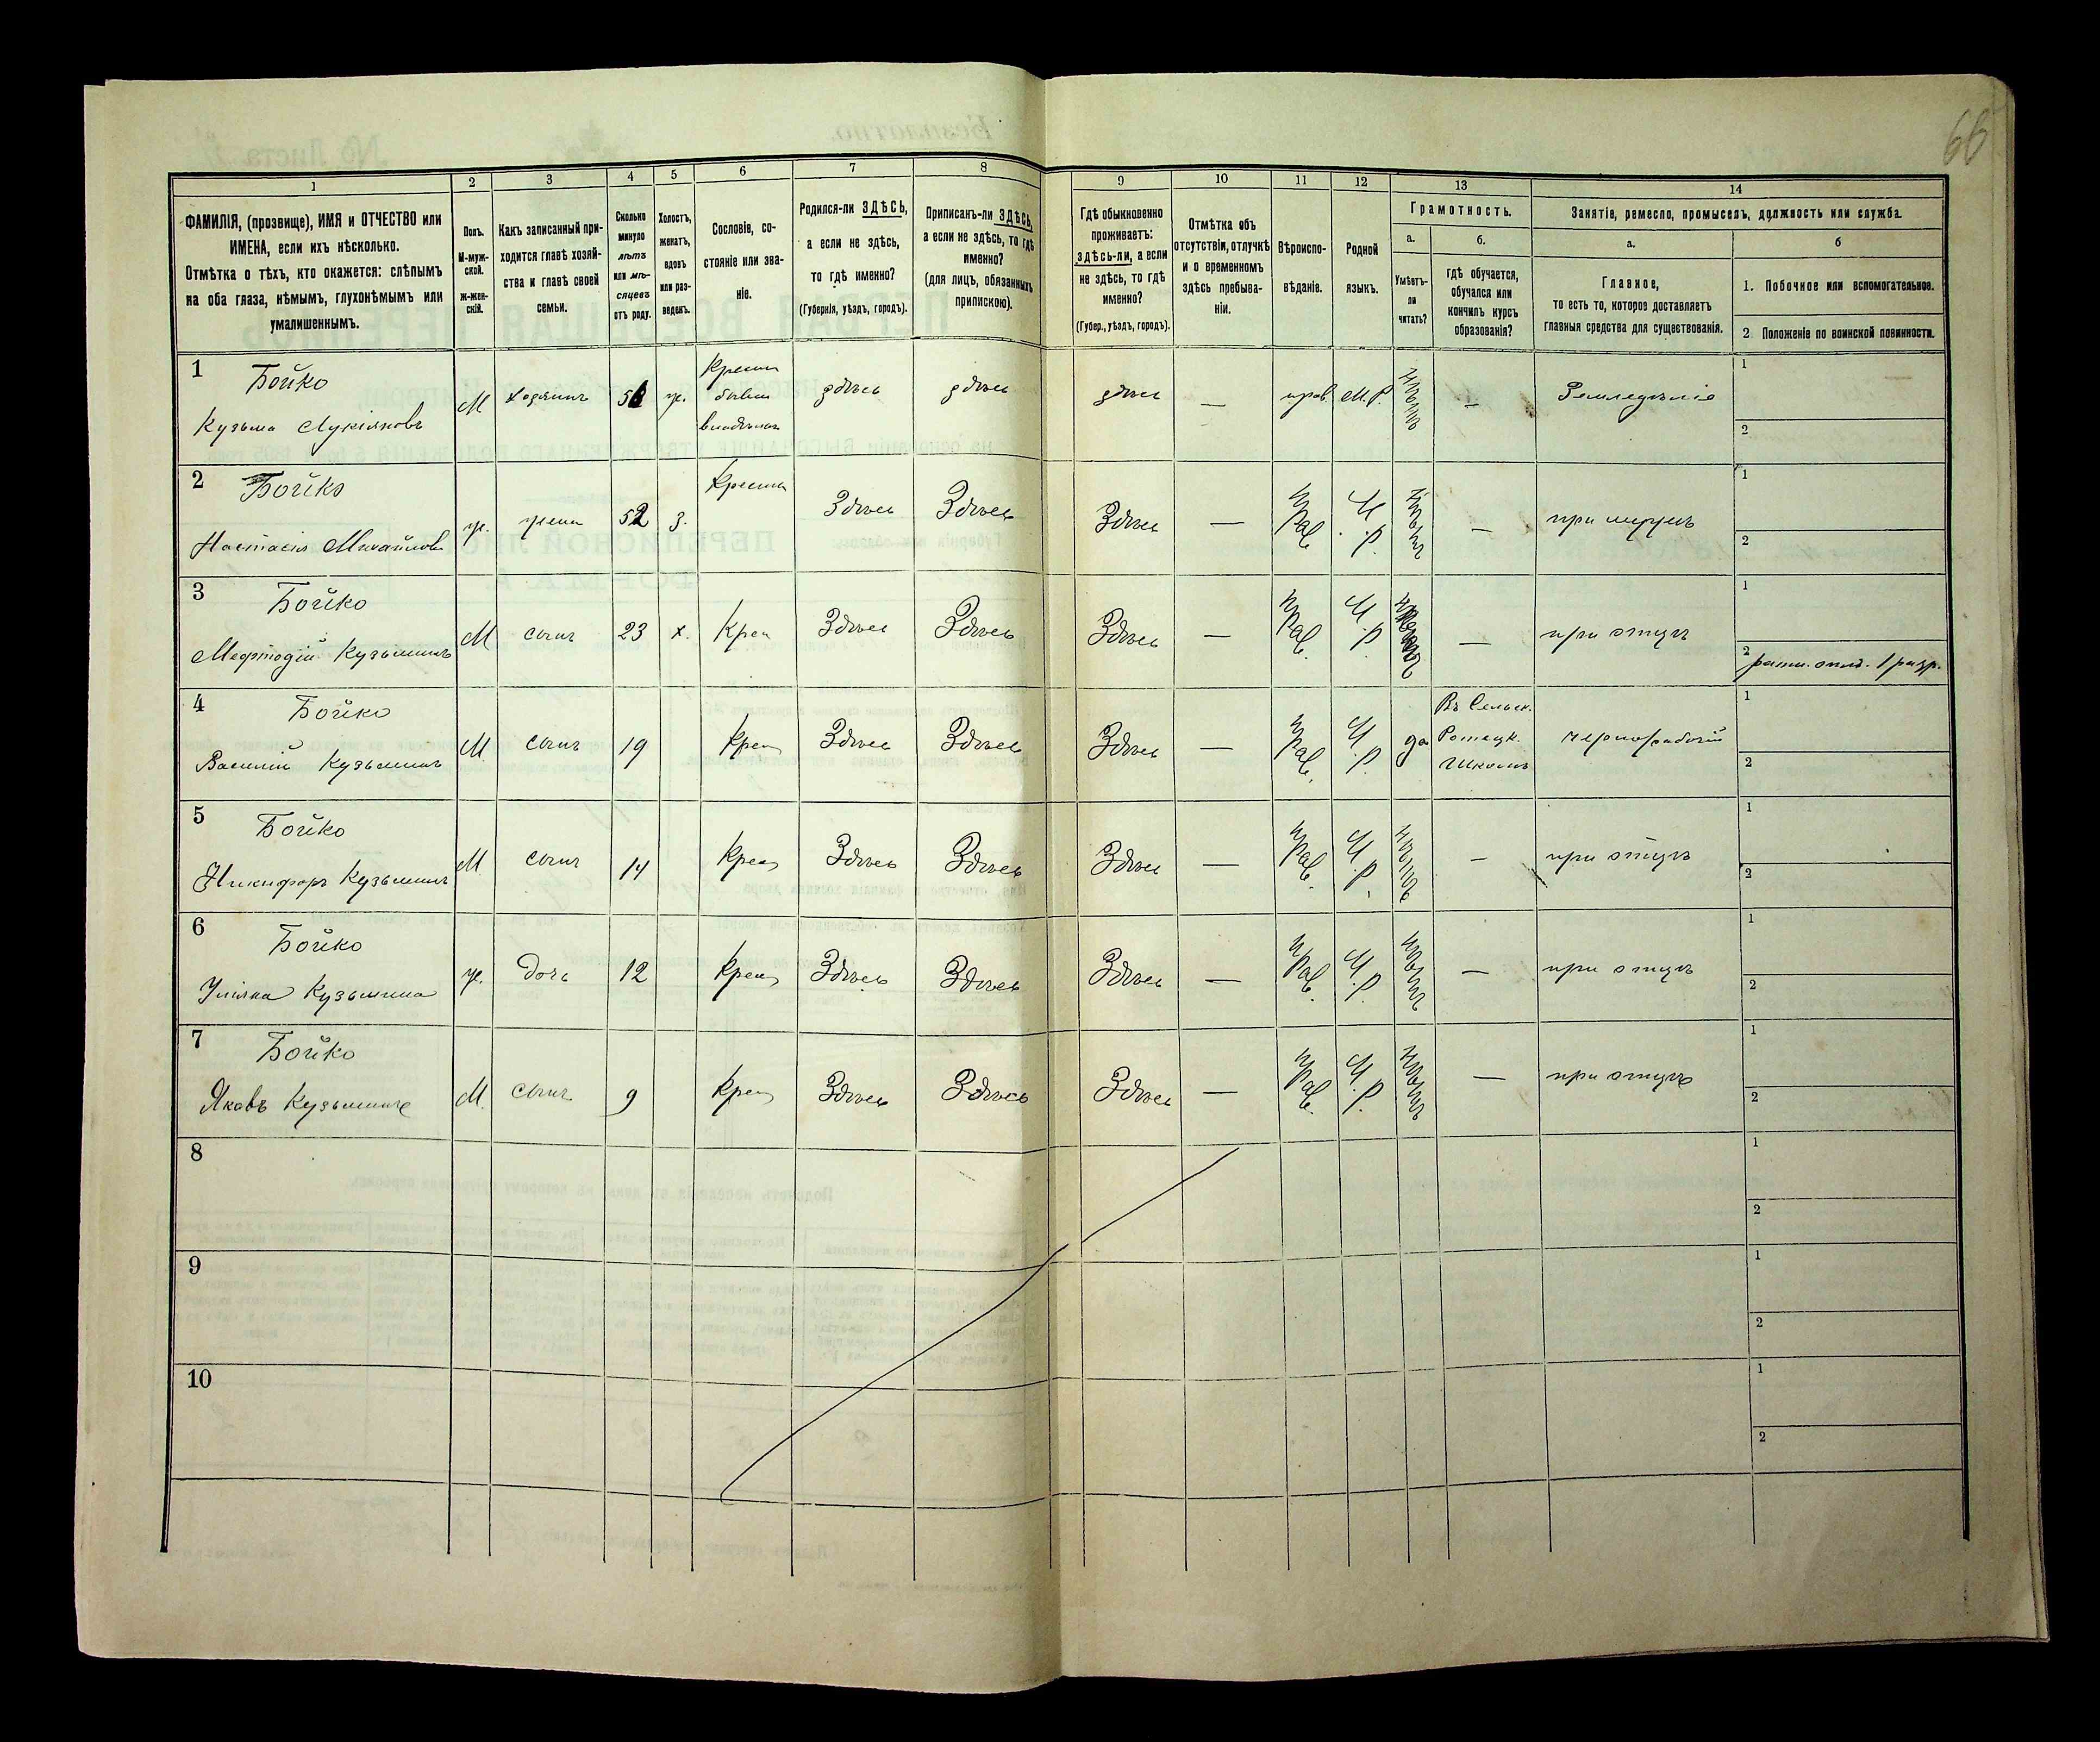 66
1 2 3 4 5 6 7 8 9 10 11 12 13 14
ФАМИЛІЯ, (прозвище), ИМЯ и ОТЧЕСТВО или
ИМЕНА, если ихъ нѣсколько.
Отмѣтка о тѣхъ, кто окажется: слѣпымъ
на оба глаза, нѣмымъ, глухонѣмымъ или
умалишеннымъ.
Полъ.
М-муж-
ской.
Ж-жен-
скій.
Какъ записанный при-
ходится главѣ хозяй-
ства и главѣ своей
семьи.
Сколько
минуло
лѣтъ
или мѣ-
сяцевъ
отъ роду.
Холостъ,
женатъ,
вдовъ
или раз-
веденъ.
Сословіе, со-
стояніе или зва-
ніе.
Родился-ли ЗДѢСЬ,
а если не здѣсь,
то гдѣ именно?
(Губернія, уѣздъ, городъ).
Приписанъ-ли ЗДѢСЬ,
а если не здѣсь, то гдѣ
именно?
(для лицъ, обязанныхъ
припискою).
Гдѣ обыкновенно
проживаетъ:
здѣсь-ли, а если
не здѣсь, то гдѣ
именно?
(Губер., уѣздъ, городъ).
Отмѣтка объ
отсутствіи, отлучкѣ
и о временномъ
здѣсь пребыва-
ніи.
Вѣроиспо-
вѣданіе.
Родной
языкъ.
Грамотность.
а.
Умѣетъ-
ли
читать?
б.
гдѣ обучается,
обучался или
кончилъ курсъ
образованія?
Занятіе, ремесло, промыселъ, должность или служба.
а.
Главное,
то есть то, которое доставляетъ
главныя средства для существованія.
б
1. Побочное или вспомогательное.
2. Положеніе по воинской повинности.
1 Бойко
Кузьма Лукіяновъ М хозяинъ 56 ж. Крестьян бывш владѣльч здѣсь здѣсь здѣсь — прав. М.Р. нѣтъ — Земледѣліе 1 2
2 Бойко
Настасія Михайлов ж. жена 52 з. Крестьян Здѣсь Здѣсь Здѣсь — Прав. М.р. нѣтъ — при мужѣ 1 2
3 Бойко
Мефтодій Кузьминъ М сынъ 23 х. Крес Здѣсь Здѣсь Здѣсь — Прав. М.р. — при отцѣ 1 2 ратн. опол. 1 разр.
4 Бойко
Василій Кузьминъ М. сынъ 19 Крес Здѣсь Здѣсь Здѣсь — Прав. М.р. да Въ Сельск. школѣ чернорабочій 1 2
5 Бойко
Никифоръ Кузьминъ М сынъ 14 Крес Здѣсь Здѣсь Здѣсь — Прав. М.р. нѣтъ — при отцѣ 1 2
6 Бойко
Уліяна Кузьмина ж. Дочь 12 Крес Здѣсь Здѣсь Здѣсь — Прав. М.р. нѣтъ — при отцѣ 1 2
7 Бойко
Яковъ Кузьминъ М. сынъ 9 Крес Здѣсь Здѣсь Здѣсь — Прав. М.р. нѣтъ — при отцѣ 1 2
8 1 2
9 1 2
10 1 2